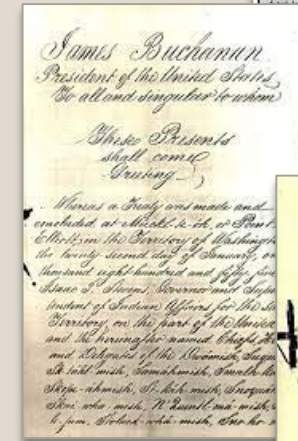 James Buchanan
President of the United States,
To all and singular to whom
These Presents
shall come
Greeting
Whereas a Treaty was made and
concluded at Muckl-te-óh, or Point
Elliott, in the Territory of Washington
the twenty second day of January,
thousand eight hundred and fifty five
Isaac I. Stevens, Governor and
of Indian Affairs, for the
Territory, on the part of the United
and the hereinafter named Chiefs,
and Delegates of the Dwamish,
Sk-tahl mish, Samahmish,
Skope-ahmish, St-kah-mish,